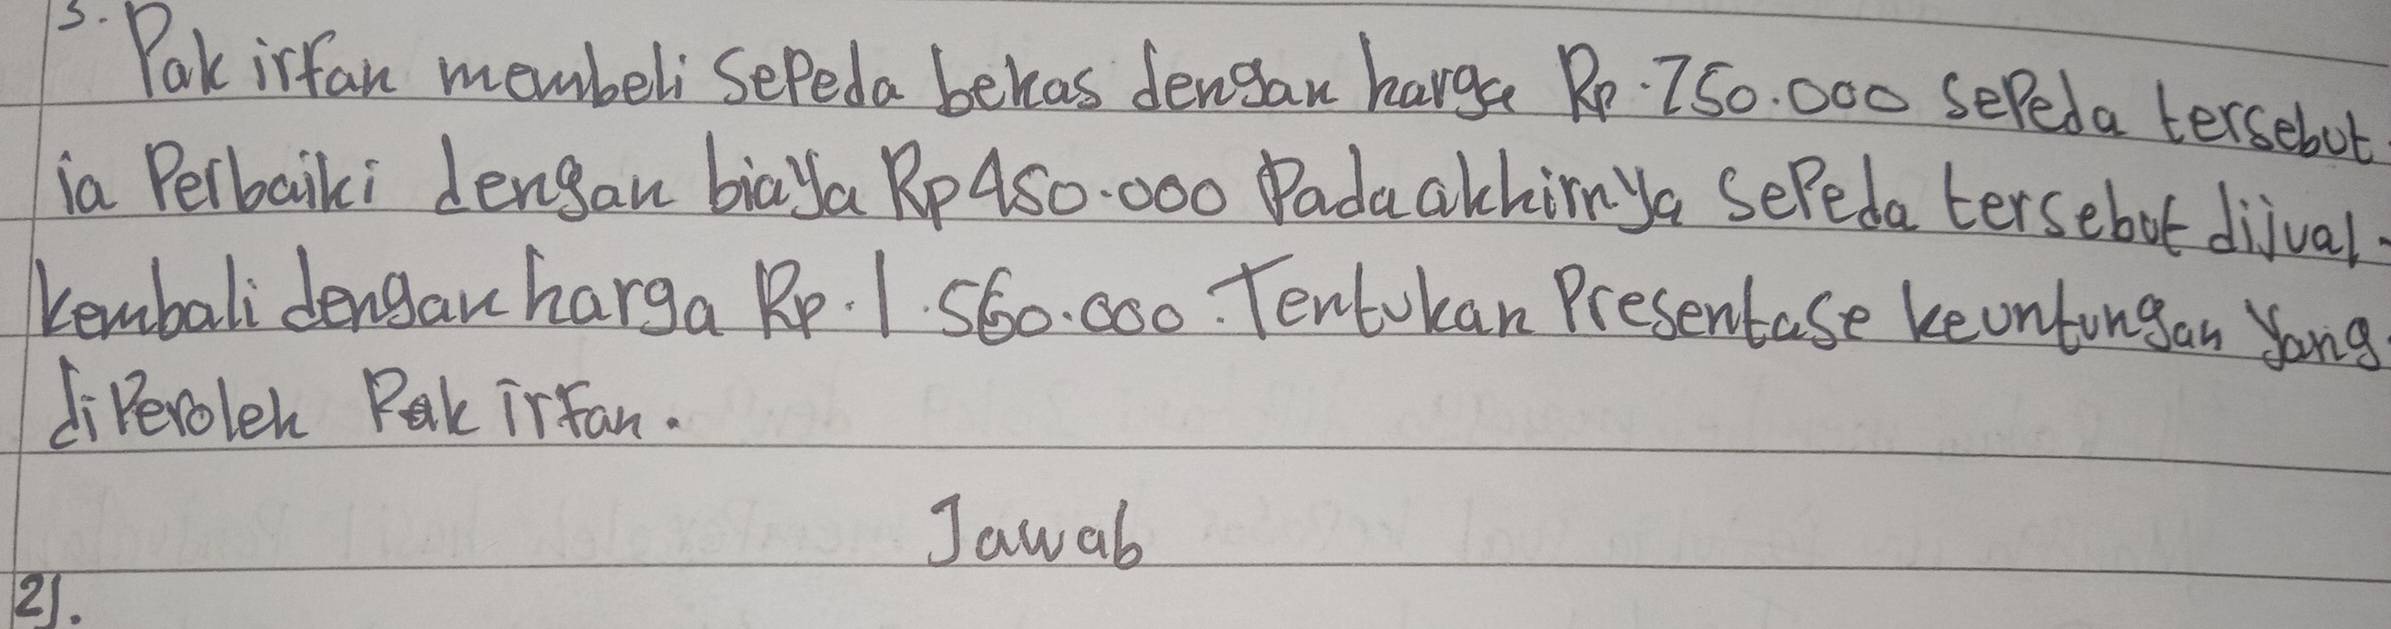 3. Pak irfan membeli sepeda bekas dengan harga Rp. 750.000 sepeda tersebut
ia Perbaiki dengan biaya Rp 450.000 Pada akhirnya sepeda tersebut dijual
kembali dengan harga Rp. 1.560.000. Tentukan Presentase keuntungan yang
diperoleh Pak irfan.
Jawab
2).